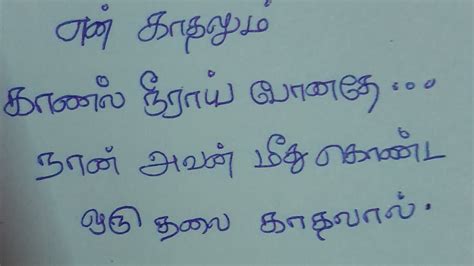 என் காதலும்
காணல் நீராய் போனதே...
நான் அவன் மீது கொண்ட
ஒரு தலை காதலால்.